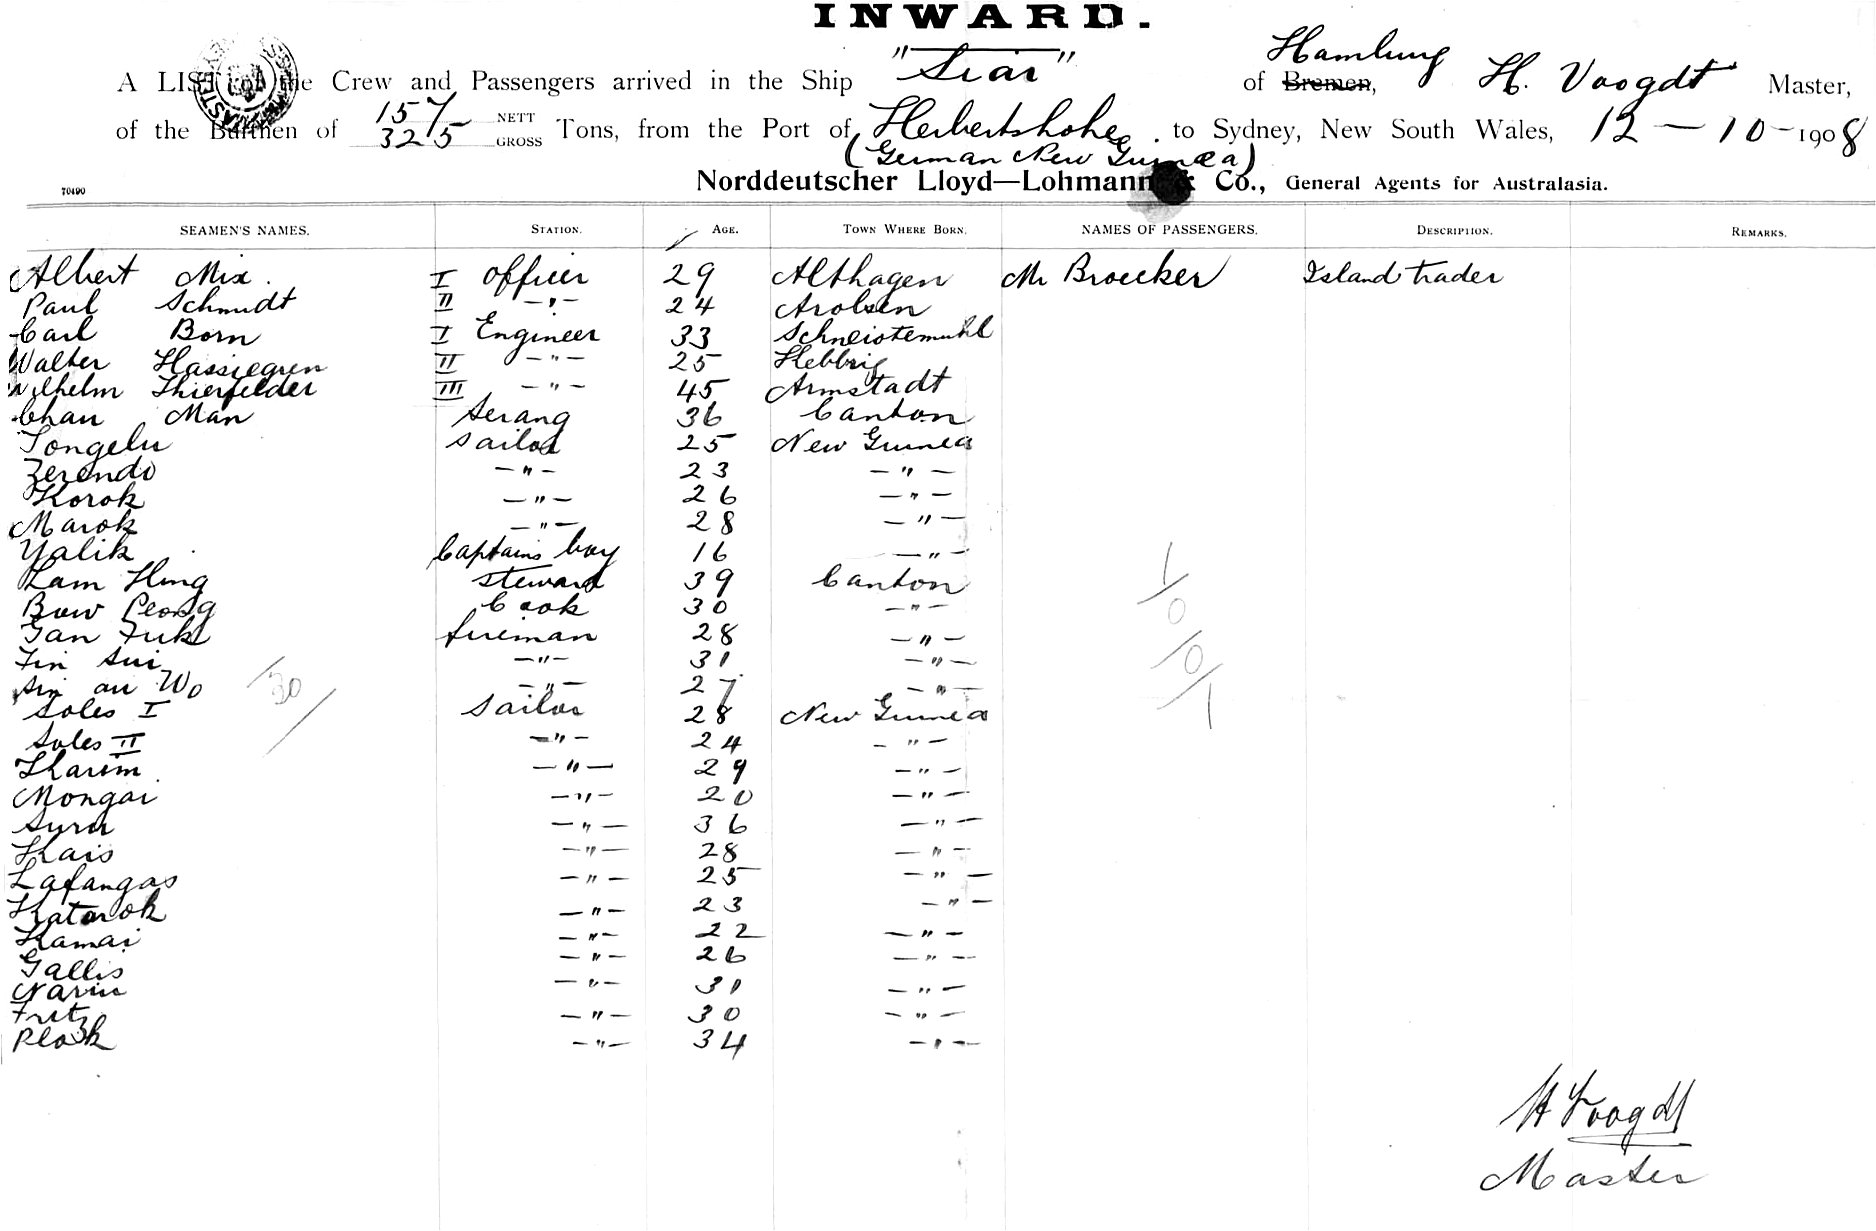 INWARD.
A LIST of the Crew and Passengers arrived in the Ship "Siar" of Bremen, Hamburg H. Voogdt Master,
of the Burthen of 157 NETT 325 GROSS Tons, from the Port of Herbertshohe to Sydney, New South Wales, 12 - 10 - 1908
(German New Guinea)
70490 Norddeutscher Lloyd—Lohmann & Co., General Agents for Australasia.
SEAMEN'S NAMES. STATION. AGE. TOWN WHERE BORN. NAMES OF PASSENGERS. DESCRIPTION. REMARKS.
Albert Mix. I Officer 29 Althagen Mr Broecker Island trader
Paul Schmidt II -"- 24 Arolsen
Carl Born I Engineer 33 Schneistemuhl
Walter Hassiegren II -"- 25
Wilhelm Thierfelder III -"- 45 Armstadt
Chau Man Serang 36 Canton
Tongelu Sailor 25 New Guinea
Zerendo -"- 23 -"-
Korok -"- 26 -"-
Marok -"- 28 -"-
Yalik Captains boy 16 -"-
Lam Hing steward 39 Canton
Bow Peong Cook 30 -"-
Gan Fuk fireman 28 -"-
Fin Sui -"- 31 -"-
Sin au Wo -"- 27 -"-
Soles I Sailor 28 New Guinea
Soles II -"- 24 -"-
Karim -"- 29 -"-
Mongai -"- 20 -"-
-"- 36 -"-
Kais -"- 28 -"-
Lafangas -"- 25 -"-
Katorok -"- 23 -"-
Kamai -"- 22 -"-
Gallis -"- 26 -"-
Narin -"- 31 -"-
Fritz -"- 30 -"-
-"- 34 -"-
30
H Voogdt
Master